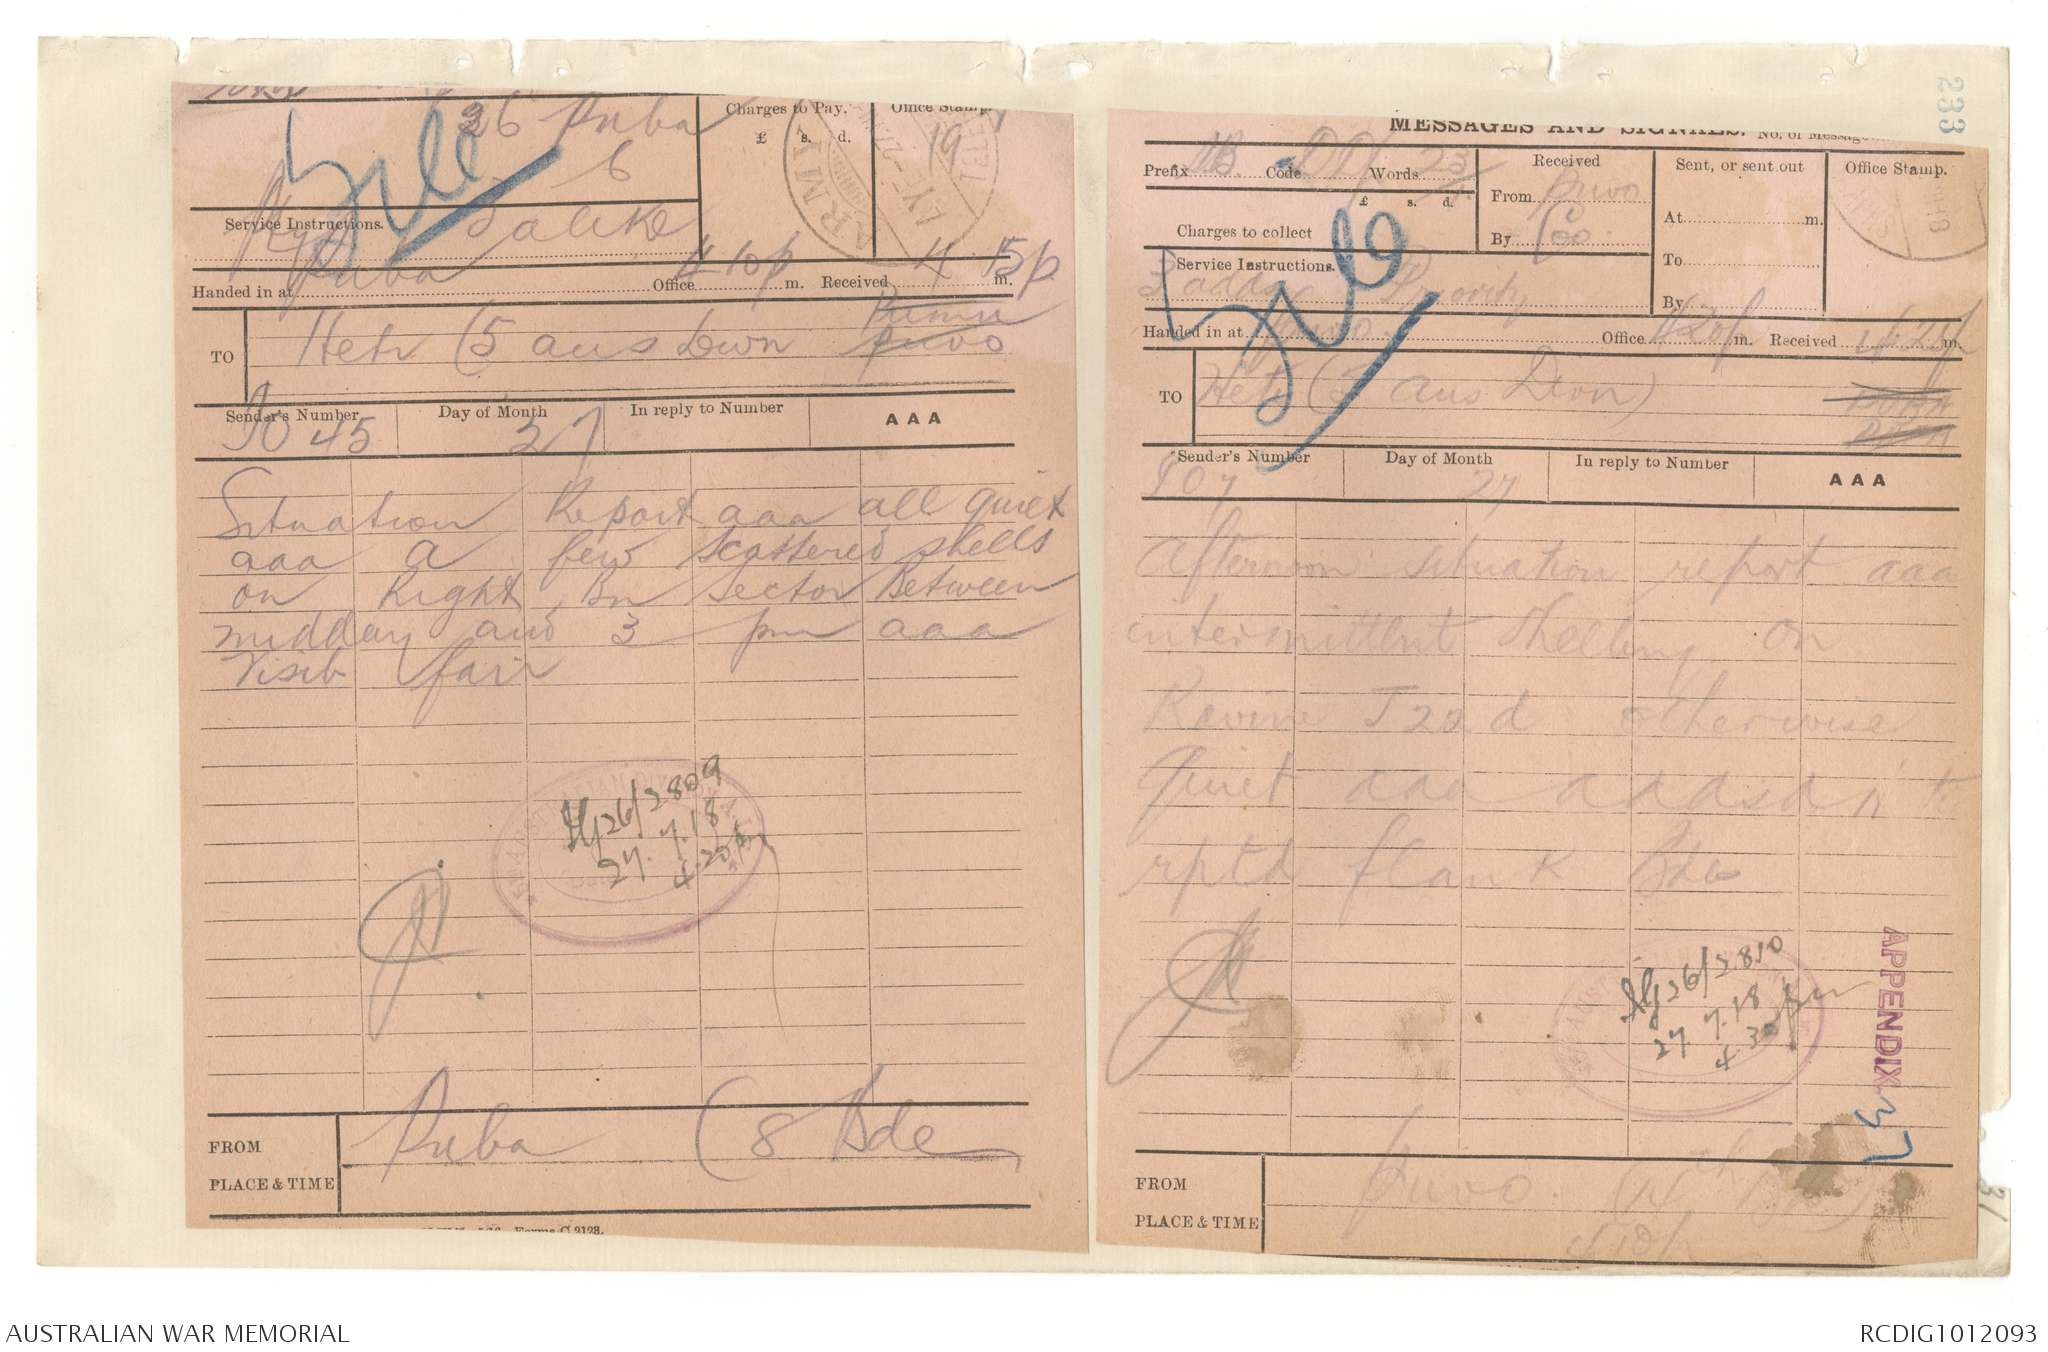 26 Puba
6
Charges to Pay.
£ s. d.
Office Stamp.
19
ARMY
Service Instructions.
Puba
Handed in at Office 4 10p m. Received 4.15p m.
Pumu
TO Hetr (5 aus Divn Puvo
Sender's Number Day of Month In reply to Number AAA
45 27
Situation Report aaa all quiet
aaa a few scattered shells
on Right Bn sector Between
midday and 3 pm aaa
Visib fair
26/2809
27.7.18
4.20pm
FROM Puba (8 Bde
PLACE & TIME
Forms C.2128.
233
MESSAGES AND SIGNALS. No. of Message
Prefix Code Words 23
Received
From Puvo
By Coo.
Sent, or sent out
At m.
To
By
Office Stamp.
£ s. d.
Charges to collect
Service Instructions.
3 adds Priority
Handed in at Puvo Office 420p m. Received 4.21p m.
TO Hetr (5 aus Divn)
Sender's Number Day of Month In reply to Number AAA
907 27
Afternoon situation report aaa
intermittent shelling on
Ravine J22d otherwise
quiet aaa addsd
rptd flank Bdes
26/2810
27.7.18
4 30pm
APPENDIX
FROM Puvo.
PLACE & TIME
AUSTRALIAN WAR MEMORIAL
RCDIG1012093